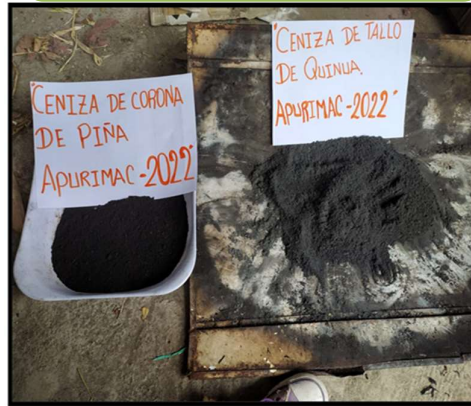 "CENIZA DE CORONA
DE PIÑA
APURIMAC -2022"
"CENIZA DE TALLO
DE QUINUA.
APURIMAC -2022"